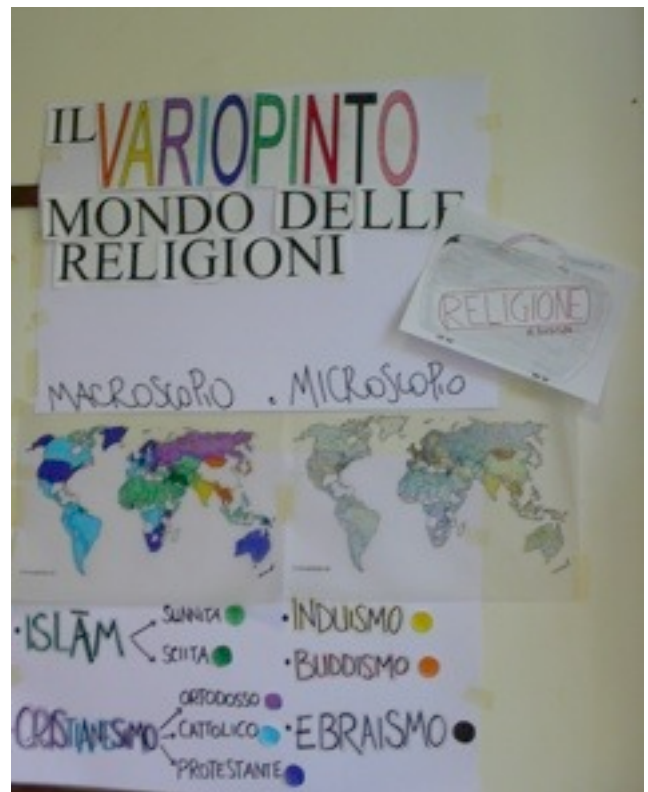 IL VARIOPINTO
MONDO DELLE
RELIGIONI
RELIGIONE
MACROSCOPIO . MICROSCOPIO
• ISLĀM
SUNNITA
SCIITA
• INDUISMO
• BUDDISMO
CRISTIANESIMO
ORTODOSSO
CATTOLICO
PROTESTANTE
• EBRAISMO